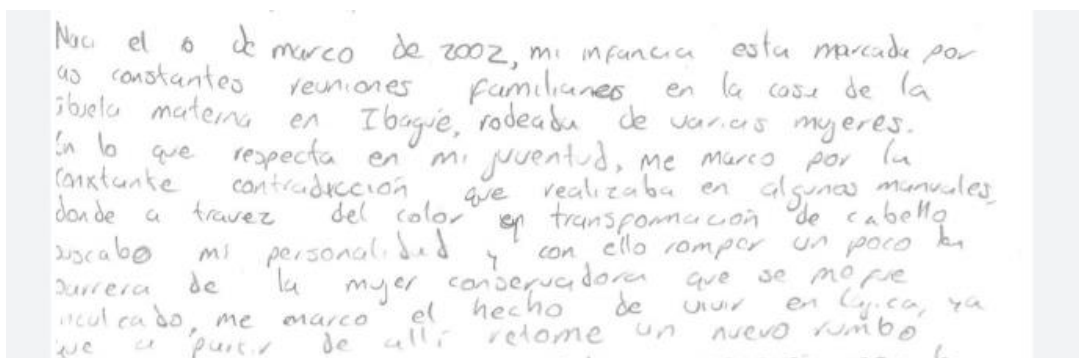 Naci el 6 de marco de 2002, mi infancia esta marcada por
as constantes reuniones familiares en la casa de la
abuela materna en Ibagué, rodeada de varias mujeres.
En lo que respecta en mi juventud, me marco por la
constante contradiccion que realizaba en algunas manuales,
donde a travez del color en transformacion de cabello
buscabo mi personalidad y con ello romper un poco la
barrera de la mujer conservadora que se me fue
inculcado, me marco el hecho de vivir en Cajica, ya
que a partir de alli retome un nuevo rumbo